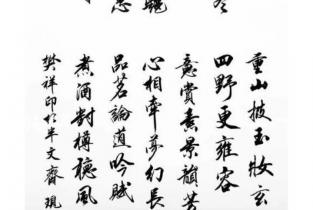 冬
重山披玉妝玄
四野更雍容
意賞素景韻
心相牽夢幻長
品茗論道吟賦
煮酒對樽聽風
樊祥印於半文齋